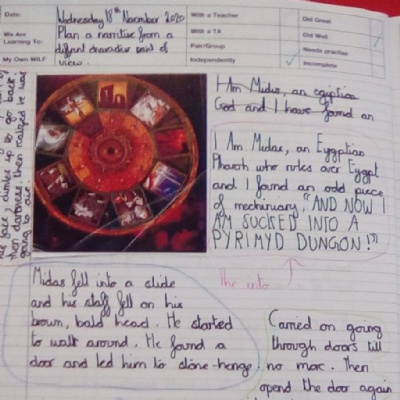 Date:
Wednesday 18th November 2020
We Are
Learning To:
Plan a narrative from a
diffrent charactive point of
view.
My Own WILF
With a Teacher
With a TA
Pair/Group
Independently
Did Great
Did Well
Needs practise
Incomplete
I Am Midas, an egyptian
God and I have found an
I Am Midas, an Eygyptian
Pharoh who rules over Eygpt
and I found an odd piece
of mechinary "AND NOW I
AM SUCKED INTO A
PYRIMYD DUNGON!"
face, climbed up to go back,
then darkness, then realized he was
going to die
Midas fell into a slide
and his staff fell on his
brown, bald head. He started
to walk around. He found a
door and led him to stone-henge.
The into
Carried on going
through doors till
no more. Then
opend the door again